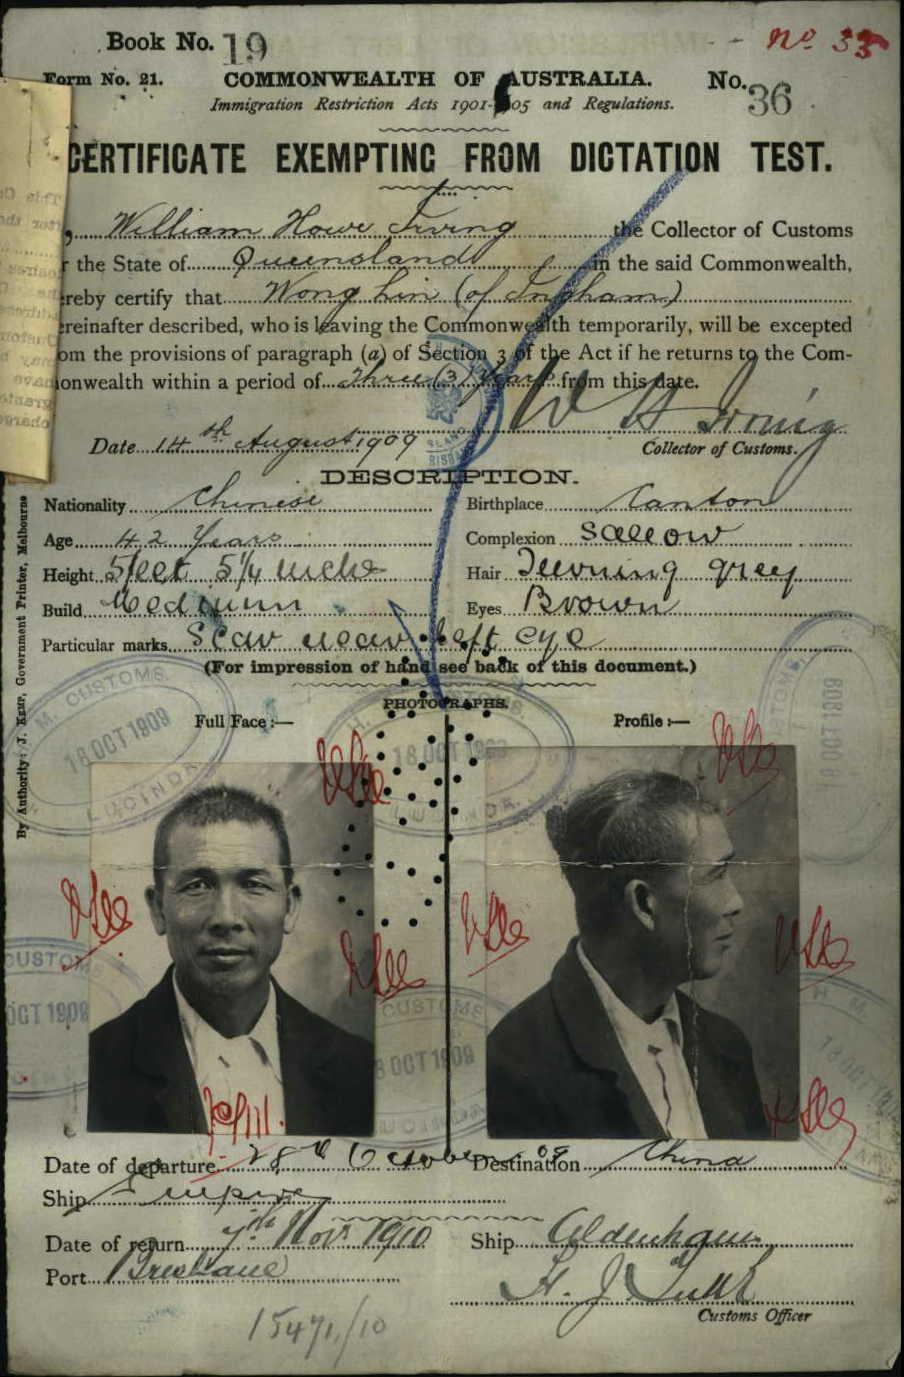 Book No. 19
No 33
Form No. 21.
COMMONWEALTH OF AUSTRALIA.
No. 36
Immigration Restriction Acts 1901-1905 and Regulations.
CERTIFICATE EXEMPTING FROM DICTATION TEST.
William Howe Irving the Collector of Customs
r the State of Queensland in the said Commonwealth,
ereby certify that Wong Lin (of Ingham)
ereinafter described, who is leaving the Commonwealth temporarily, will be excepted
om the provisions of paragraph (a) of Section 3 of the Act if he returns to the Com-
onwealth within a period of Three (3) Years from this date.
W H Irving
Date 14th August 1909
Collector of Customs.
DESCRIPTION.
Nationality Chinese
Birthplace Canton
Age 42 Years
Complexion Sallow
Height 5 feet 5¼ inche
Hair Turning grey
Build Medium
Eyes Brown
Particular marks Scar near left eye
(For impression of hand see back of this document.)
By Authority: J. Kemp, Government Printer, Melbourne
PHOTOGRAPHS.
Full Face:—
Profile:—
H. M. CUSTOMS.
18 OCT 1909
LUCINDA.
18 OCT 1909
18 OCT 1909
CUSTOMS
OCT 1909
CUSTOMS
8 OCT 1909
LUCINDA
H. M.
18 OCT
Date of departure 28th October 09
Destination China
Ship Empire
Date of return 7th Nov. 1910
Ship Aldenham
Port Brisbane
Customs Officer
15471/10